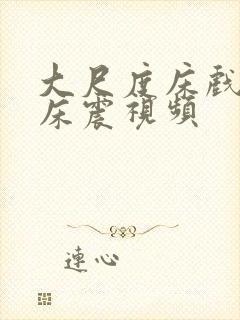 大尺度床戲
床震視頻
連心